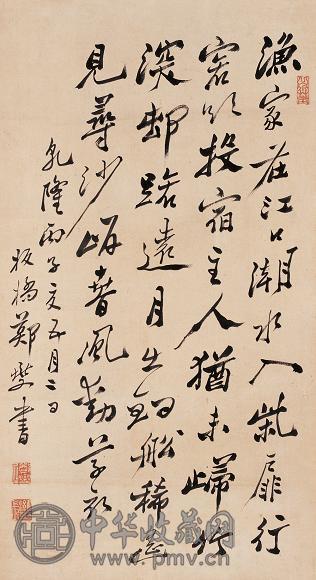 漁家在江口潮水入柴扉行
客欲投宿主人猶未歸竹
深邨路遠月出釣船稀遙
見尋沙岸春風動草衣
乾隆丙子五月二日
板橋鄭燮書
中华收藏网
www.pmv.cn